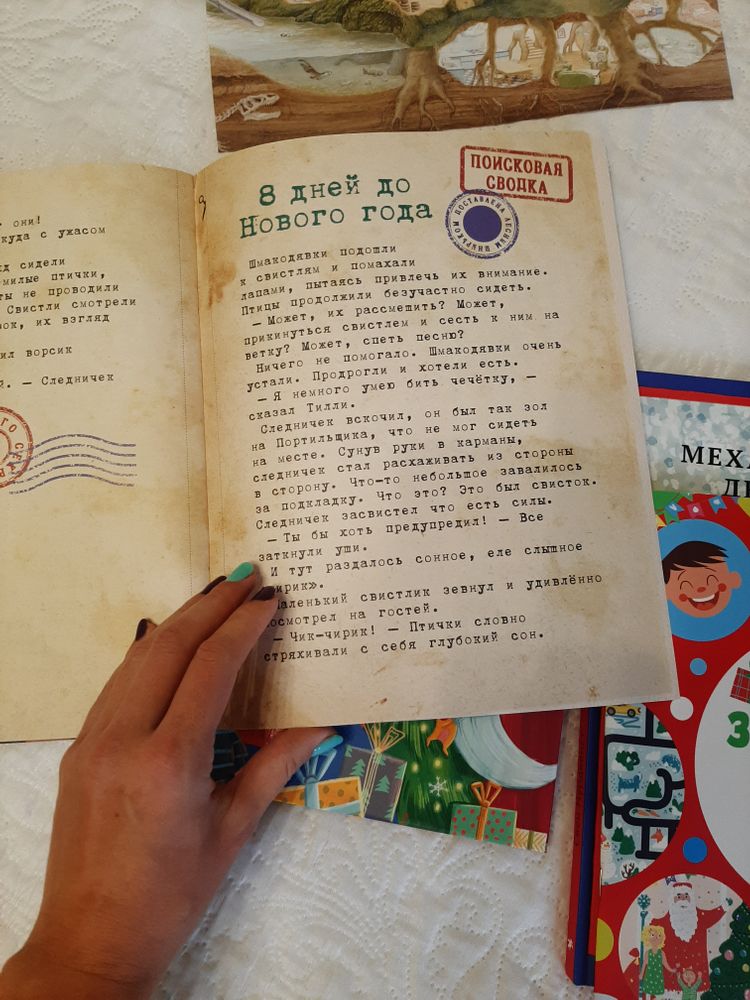 они!
куда с ужасом
сидели
милые птички,
ты не проводили
Свистли смотрели
их взгляд
ворсик
— Следничек
ПОИСКОВАЯ
СВОДКА
ПОСТАВЛЕНА ЛЕСНЫМ
8 дней до
Нового года
Шмакодявки подошли
к свистлям и помахали
лапами, пытаясь привлечь их внимание.
Птицы продолжили безучастно сидеть.
— Может, их рассмешить? Может,
прикинуться свистлем и сесть к ним на
ветку? Может, спеть песню?
Ничего не помогало. Шмакодявки очень
устали. Продрогли и хотели есть.
— Я немного умею бить чечётку, —
сказал Тилли.
Следничек вскочил, он был так зол
на Портильщика, что не мог сидеть
на месте. Сунув руки в карманы,
следничек стал расхаживать из стороны
в сторону. Что-то небольшое завалилось
за подкладку. Что это? Это был свисток.
Следничек засвистел что есть силы.
— Ты бы хоть предупредил! — Все
заткнули уши.
И тут раздалось сонное, еле слышное
ирик».
Маленький свистлик зевнул и удивлённо
посмотрел на гостей.
— Чик-чирик! — Птички словно
стряхивали с себя глубокий сон.
МЕХ
З